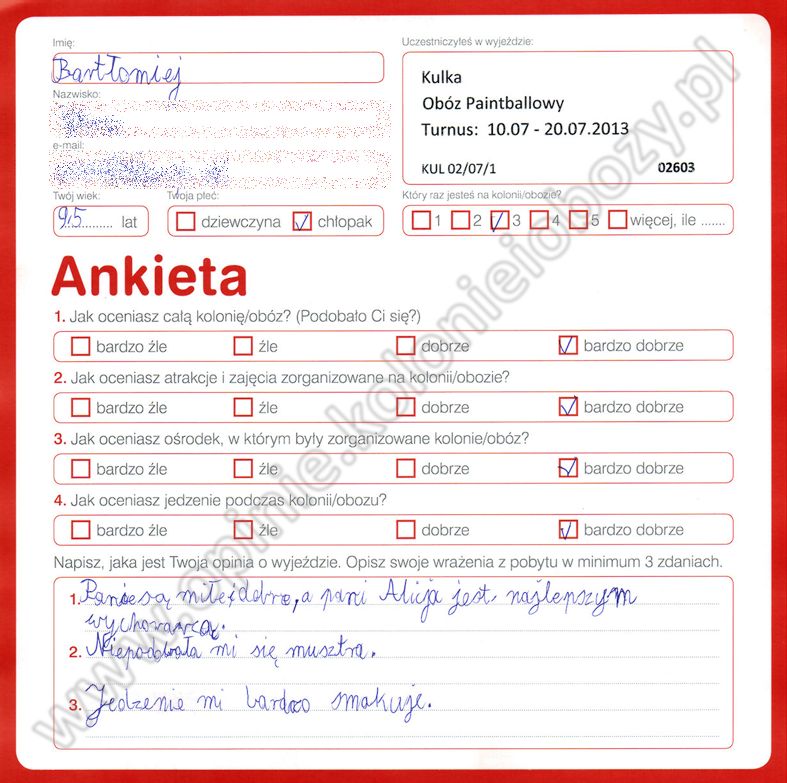 Imię:
Uczestniczyłeś w wyjeździe:
Bartłomiej
Kulka
Obóz Paintballowy
Turnus: 10.07 - 20.07.2013
KUL 02/07/1 02603
Nazwisko:
e-mail:
Twój wiek: Twoja płeć: Który raz jesteś na kolonii/obozie?
9,5 lat dziewczyna chłopak 1 2 3 4 5 więcej, ile .......
Ankieta
1. Jak oceniasz całą kolonię/obóz? (Podobało Ci się?)
bardzo źle źle dobrze bardzo dobrze
2. Jak oceniasz atrakcje i zajęcia zorganizowane na kolonii/obozie?
bardzo źle źle dobrze bardzo dobrze
3. Jak oceniasz ośrodek, w którym były zorganizowane kolonie/obóz?
bardzo źle źle dobrze bardzo dobrze
4. Jak oceniasz jedzenie podczas kolonii/obozu?
bardzo źle źle dobrze bardzo dobrze
Napisz, jaka jest Twoja opinia o wyjeździe. Opisz swoje wrażenia z pobytu w minimum 3 zdaniach.
1. Panie są miłe i dobre, a pani Alicja jest najlepszym
wychowawcą.
2. Niepodobała mi się musztra.
3. Jedzenie mi bardzo smakuje.
www.opinie.kolonieiobozy.pl